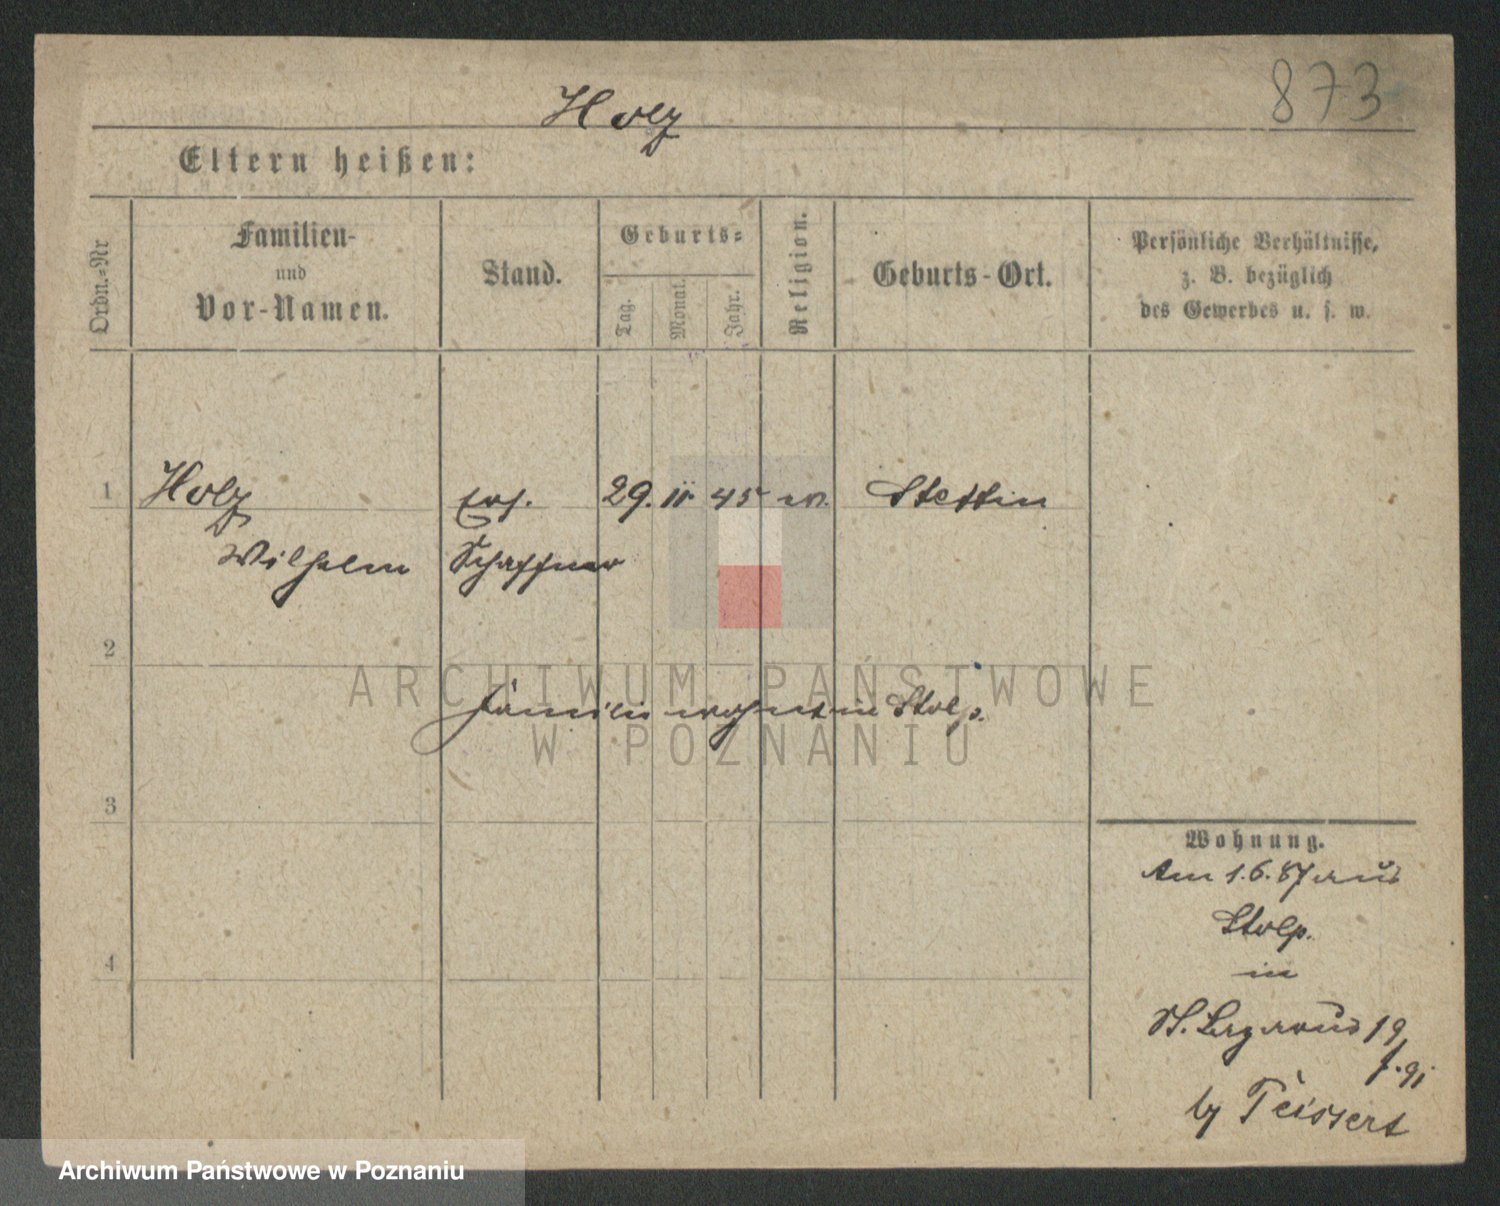 873
Holz
Eltern heißen:
Ordn.-Nr
Familien-
und
Vor-Namen.
Stand.
Geburts-
Tag.
Monat.
Jahr.
Religion.
Geburts-Ort.
Persönliche Verhältnisse,
z. B. bezüglich
des Gewerbes u. s. w.
1 Holz 29. 11 45 Stettin
Wilhelm Schaffner
2
ARCHIWUM PAŃSTWOWE
W POZNANIU
Familie wohnt in Stolp.
3
Wohnung.
Am 1.6.87 aus
Stolp.
in
4
St. Lazarus 19
by Teissert
Archiwum Państwowe w Poznaniu